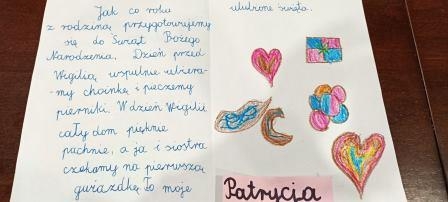 Jak co roku
z rodziną przygotowujemy
się do Świąt Bożego
Narodzenia. Dzień przed
Wigilią wspulnie ubiera-
-my choinkę i pieczemy
pierniki. W dzień Wigilii
cały dom pięknie
pachnie, a ja i siostra
czekamy na pierwszą
gwiazdkę. To moje
ulubione święta.
Patrycja